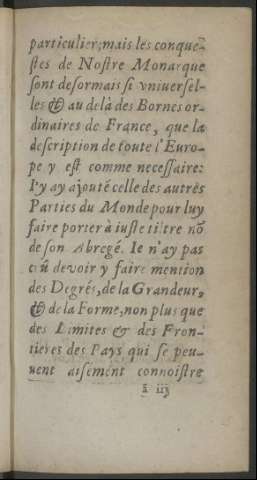 particulier; mais les conque-
stes de Nostre Monarque
sont desormais si vniuersel-
les & au delà des Bornes or-
dinaires de France, que la
description de toute l'Euro-
pe y est comme necessaire:
I'y ay ajoûté celle des autres
Parties du Monde pour luy
faire porter à iuste tiltre nõ
de son Abregé. Ie n'ay pas
crû devoir y faire mention
des Degrés, de la Grandeur,
& de la Forme, non plus que
des Limites & des Fron-
tieres des Pays qui se peu-
uent aisement connoistre
ã iij